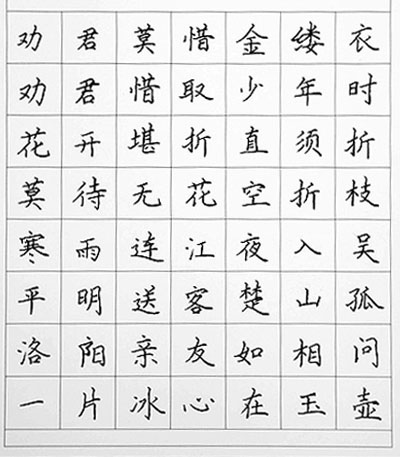 劝君莫惜金缕衣
劝君惜取少年时
花开堪折直须折
莫待无花空折枝
寒雨连江夜入吴
平明送客楚山孤
洛阳亲友如相问
一片冰心在玉壶